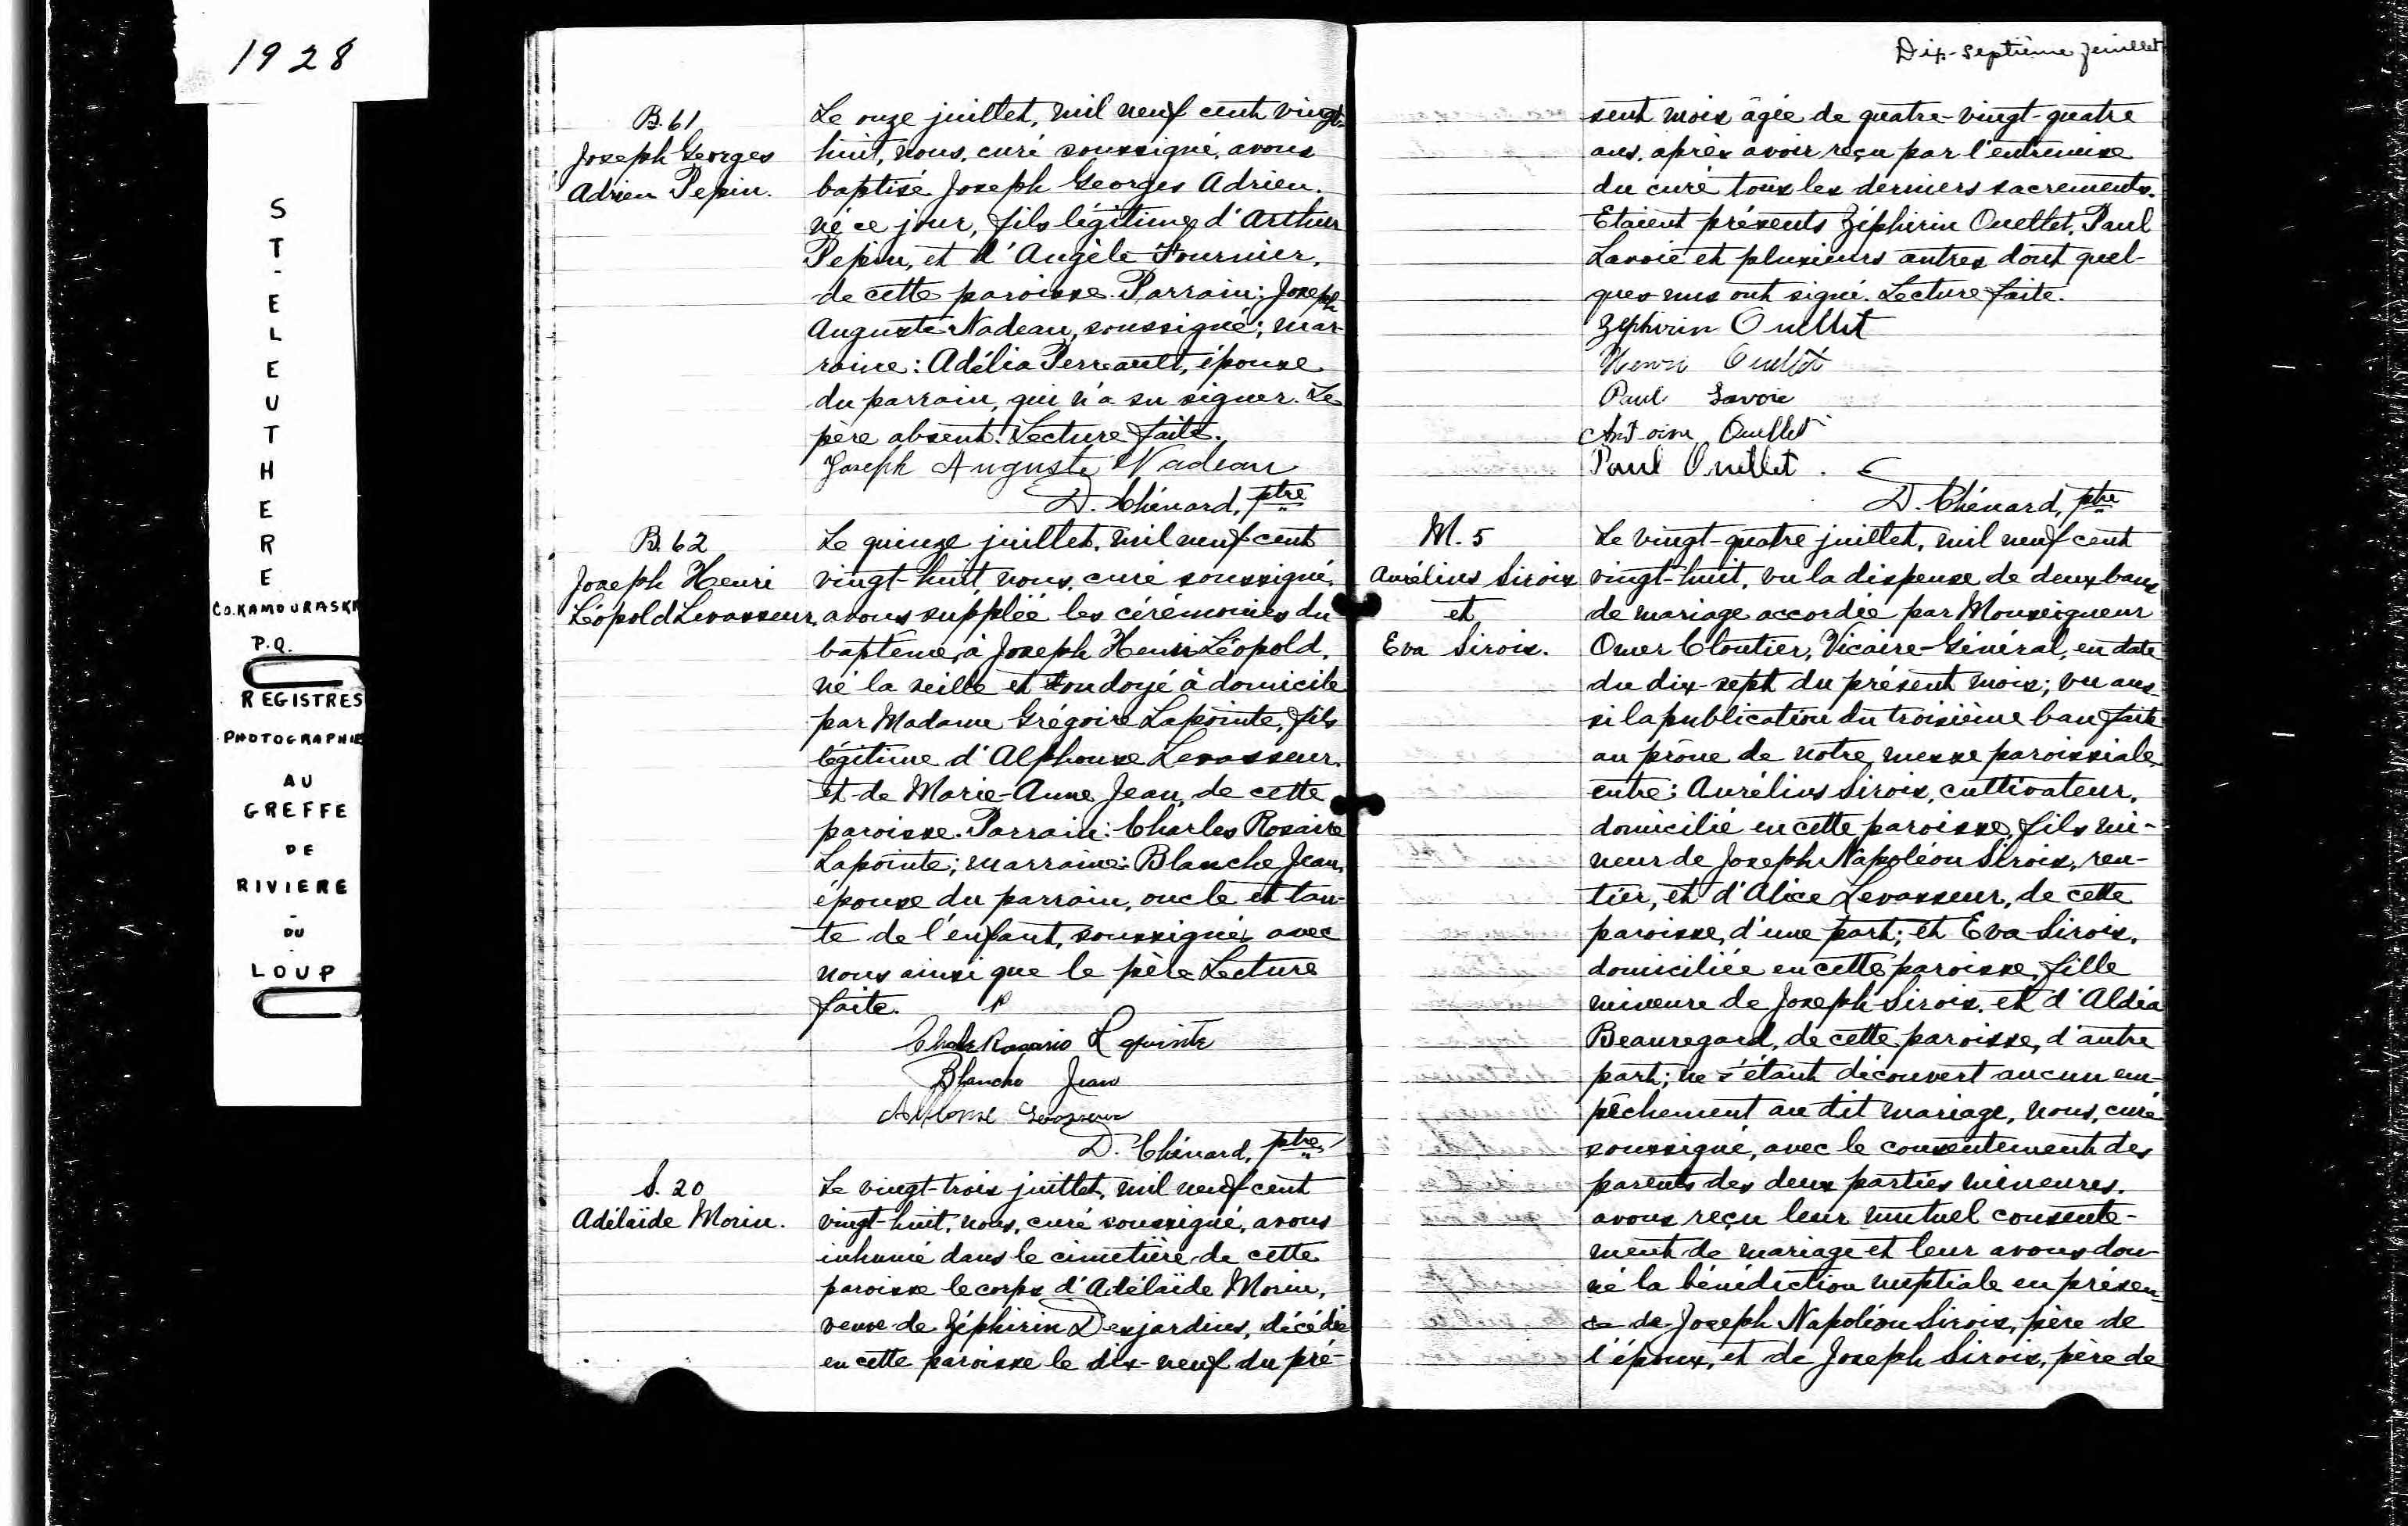 1928
ST-ELEUTHERE
CO. KAMOURASKA
P.Q.
REGISTRES
PHOTOGRAPHIE
AU
GREFFE
DE
RIVIERE
-
DU
-
LOUP
B. 61
Joseph Georges
Adrien Pepin.
Le onze juillet, mil neuf cent vingt-
huit, nous, curé soussigné, avons
baptisé Joseph Georges Adrien,
né ce jour, fils légitime d'Arthur
Pepin, et d'Angèle Fournier,
de cette paroisse. Parrain: Joseph
Auguste Nadeau, soussigné; mar-
raine: Adélia Perreault, épouse
du parrain, qui n'a su signer. Le
père absent. Lecture faite.
Joseph Auguste Nadeau
D. Chénard, ptre
B. 62
Joseph Henri
Léopold Levasseur
Le quinze juillet, mil neuf cent
vingt-huit, nous, curé soussigné,
avons supplée les cérémonies du
baptême, à Joseph Henri Léopold,
né la veille et ondoyé à domicile
par Madame Grégoire Lapointe, fils
légitime d'Alphonse Levasseur,
et de Marie-Anne Jean, de cette
paroisse. Parrain: Charles Rosaire
Lapointe; marraine: Blanche Jean,
épouse du parrain, oncle et tan-
te de l'enfant, soussignés avec
nous ainsi que le père Lecture
faite.
Rosario Lapointe
Blanche Jean
Alphonse Levasseur
D. Chénard, ptre
S. 20
Adélaïde Morin.
Le vingt-trois juillet, mil neuf cent
vingt-huit, nous, curé soussigné, avons
inhumé dans le cimetière de cette
paroisse le corps d'Adélaïde Morin,
veuve de Zéphirin Desjardins, décédée
en cette paroisse le dix-neuf du pré-
Dix-septième feuillet
sent mois âgée de quatre-vingt-quatre
ans, après avoir reçu par l'entremise
du curé tous les derniers sacrements.
Etaient présents Zéphirin Ouellet, Paul
Lavoie et plusieurs autres dont quel-
ques uns ont signé. Lecture faite.
Zephirin Ouellet
Henri Ouellet
Paul Lavoie
Antoine Ouellet
Paul Ouellet.
D. Chénard, ptre
M. 5
Aurélius Sirois
et
Eva Sirois.
Le vingt-quatre juillet, mil neuf cent
vingt-huit, vu la dispense de deux bans
de mariage accordée par Monseigneur
Omer Cloutier, Vicaire-Général, en date
du dix-sept du présent mois; vu aus-
si la publication du troisième ban faite
au prône de notre messe paroissiale
entre: Aurélius Sirois, cultivateur,
domicilié en cette paroisse, fils mi-
neur de Joseph Napoléon Sirois, ren-
tier, et d'Alice Levasseur, de cette
paroisse, d'une part; et Eva Sirois,
domiciliée en cette paroisse, fille
mineure de Joseph Sirois, et d'Aldéa
Beauregard, de cette paroisse, d'autre
part; ne s'étant découvert aucun em-
pêchement au dit mariage, nous, curé
soussigné, avec le consentement des
parents des deux parties mineures,
avons reçu leur mutuel consente-
ment de mariage et leur avons don-
né la bénédiction nuptiale en présen-
ce de Joseph Napoléon Sirois, père de
l'époux, et de Joseph Sirois, père de